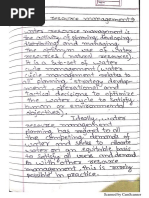 resource management :-
water resource management is
the activity of planning, developing
distributing and managing
the optimum use of water
resources (natural resources).
It is a sub-set of water
cycle management. (water
cycle management relates to
planning (strategy develop-
ment, operational and
tactical decisions to optimize
the water cycle to satisfy
human objectives
environmental
Ideally, water
resource management
planning has regard to all
the competing demands of
water and seeks to create
water on an equitable basis
to satisfy all uses and demand
As with other resource
management, this is rarely
possible in practice.
Scanned by CamScanner